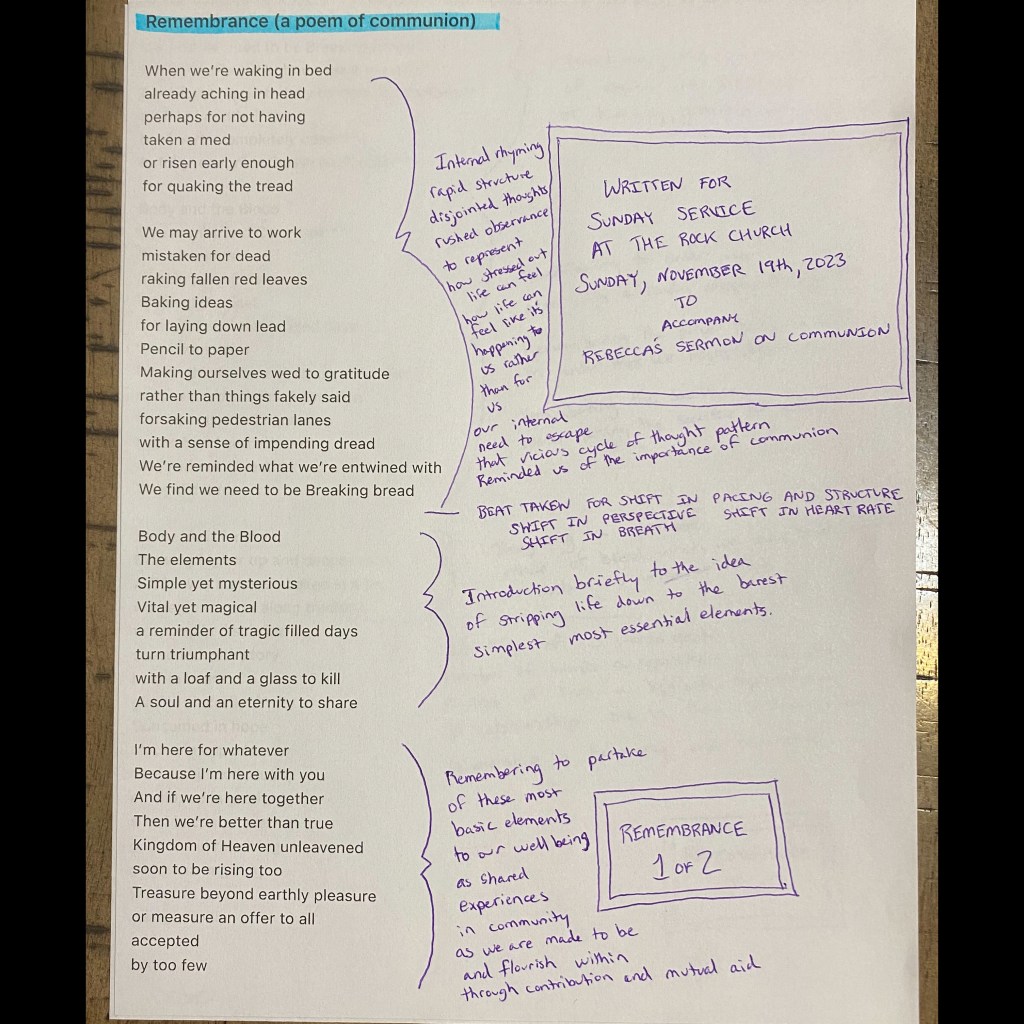 Remembrance (a poem of communion)
When we're waking in bed
already aching in head
perhaps for not having
taken a med
or risen early enough
for quaking the tread
We may arrive to work
mistaken for dead
raking fallen red leaves
Baking ideas
for laying down lead
Pencil to paper
Making ourselves wed to gratitude
rather than things fakely said
forsaking pedestrian lanes
with a sense of impending dread
We're reminded what we're entwined with
We find we need to be Breaking bread
Body and the Blood
The elements
Simple yet mysterious
Vital yet magical
a reminder of tragic filled days
turn triumphant
with a loaf and a glass to kill
A soul and an eternity to share
I'm here for whatever
Because I'm here with you
And if we're here together
Then we're better than true
Kingdom of Heaven unleavened
soon to be rising too
Treasure beyond earthly pleasure
or measure an offer to all
accepted
by too few
Internal rhyming
rapid structure
disjointed thoughts
rushed observance
to represent
how stressed out
life can feel
how life can
feel like it's
happening to
us rather
than for
us
our internal
need to escape
that vicious cycle of thought pattern
Reminded us of the importance of communion
WRITTEN FOR
SUNDAY SERVICE
AT THE ROCK CHURCH
SUNDAY, NOVEMBER 19th, 2023
TO
ACCOMPANY
REBECCA'S SERMON ON COMMUNION
BEAT TAKEN FOR SHIFT IN PACING AND STRUCTURE
SHIFT IN PERSPECTIVE SHIFT IN HEART RATE
SHIFT IN BREATH
Introduction briefly to the idea
of stripping life down to the barest
simplest most essential elements.
Remembering to partake
of these most
basic elements
to our well being
as shared
experiences
in community
as we are made to be
and flourish within
through contribution and mutual aid
REMEMBRANCE
1 OF 2